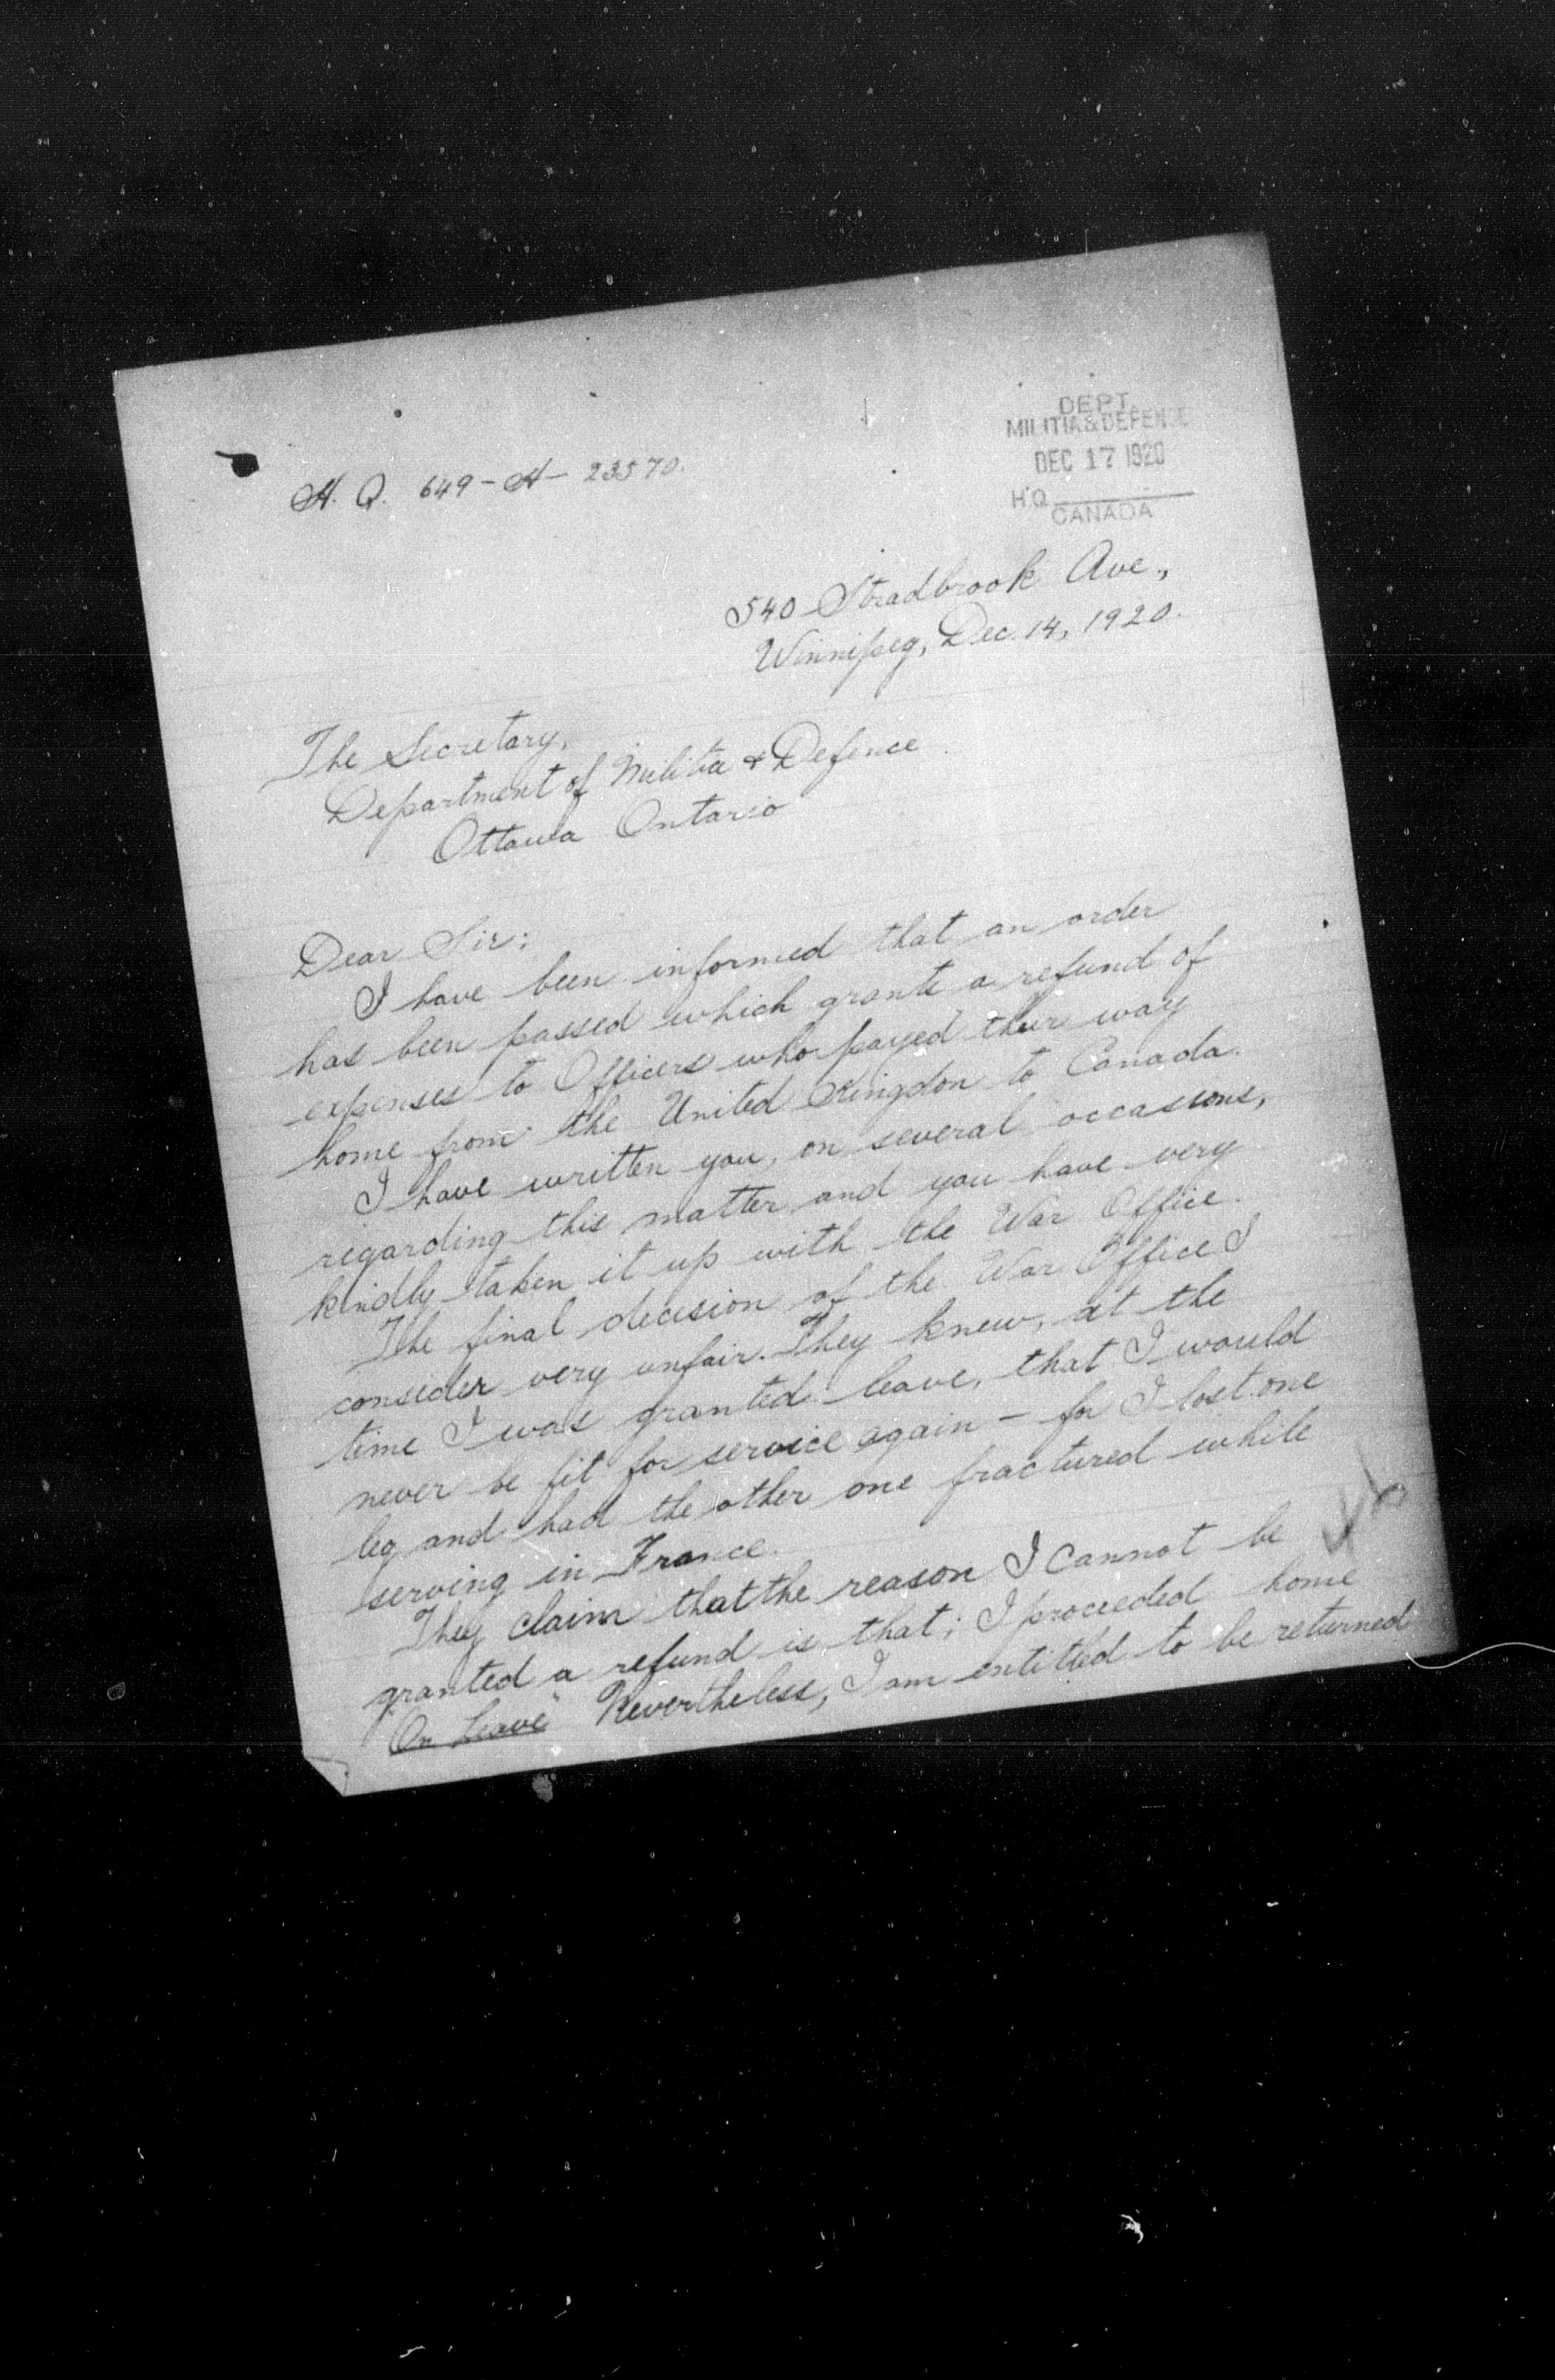 DEPT.
MILITIA & DEFENSE
DEC 17 1920
H.Q.
CANADA
H. Q. 649-H-23570.
540 Stradbrook Ave.,
Winnipeg, Dec. 14, 1920.
The Secretary,
Department of Militia & Defence
Ottawa Ontario
Dear Sir:
I have been informed that an order
has been passed which grants a refund of
expenses to Officers who payed their way
home from the United Kingdon to Canada.
I have written you, on several occassions,
regarding this matter and you have very
kindly taken it up with the War Office.
The final decision of the War Office I
consider very unfair. They knew, at the
time I was granted leave, that I would
never be fit for service again – for I lost one
leg and had the other one fractured while
serving in France.
They claim that the reason I cannot be
granted a refund is that; I proceeded home
"On Leave" Nevertheless, I am entitled to be returned